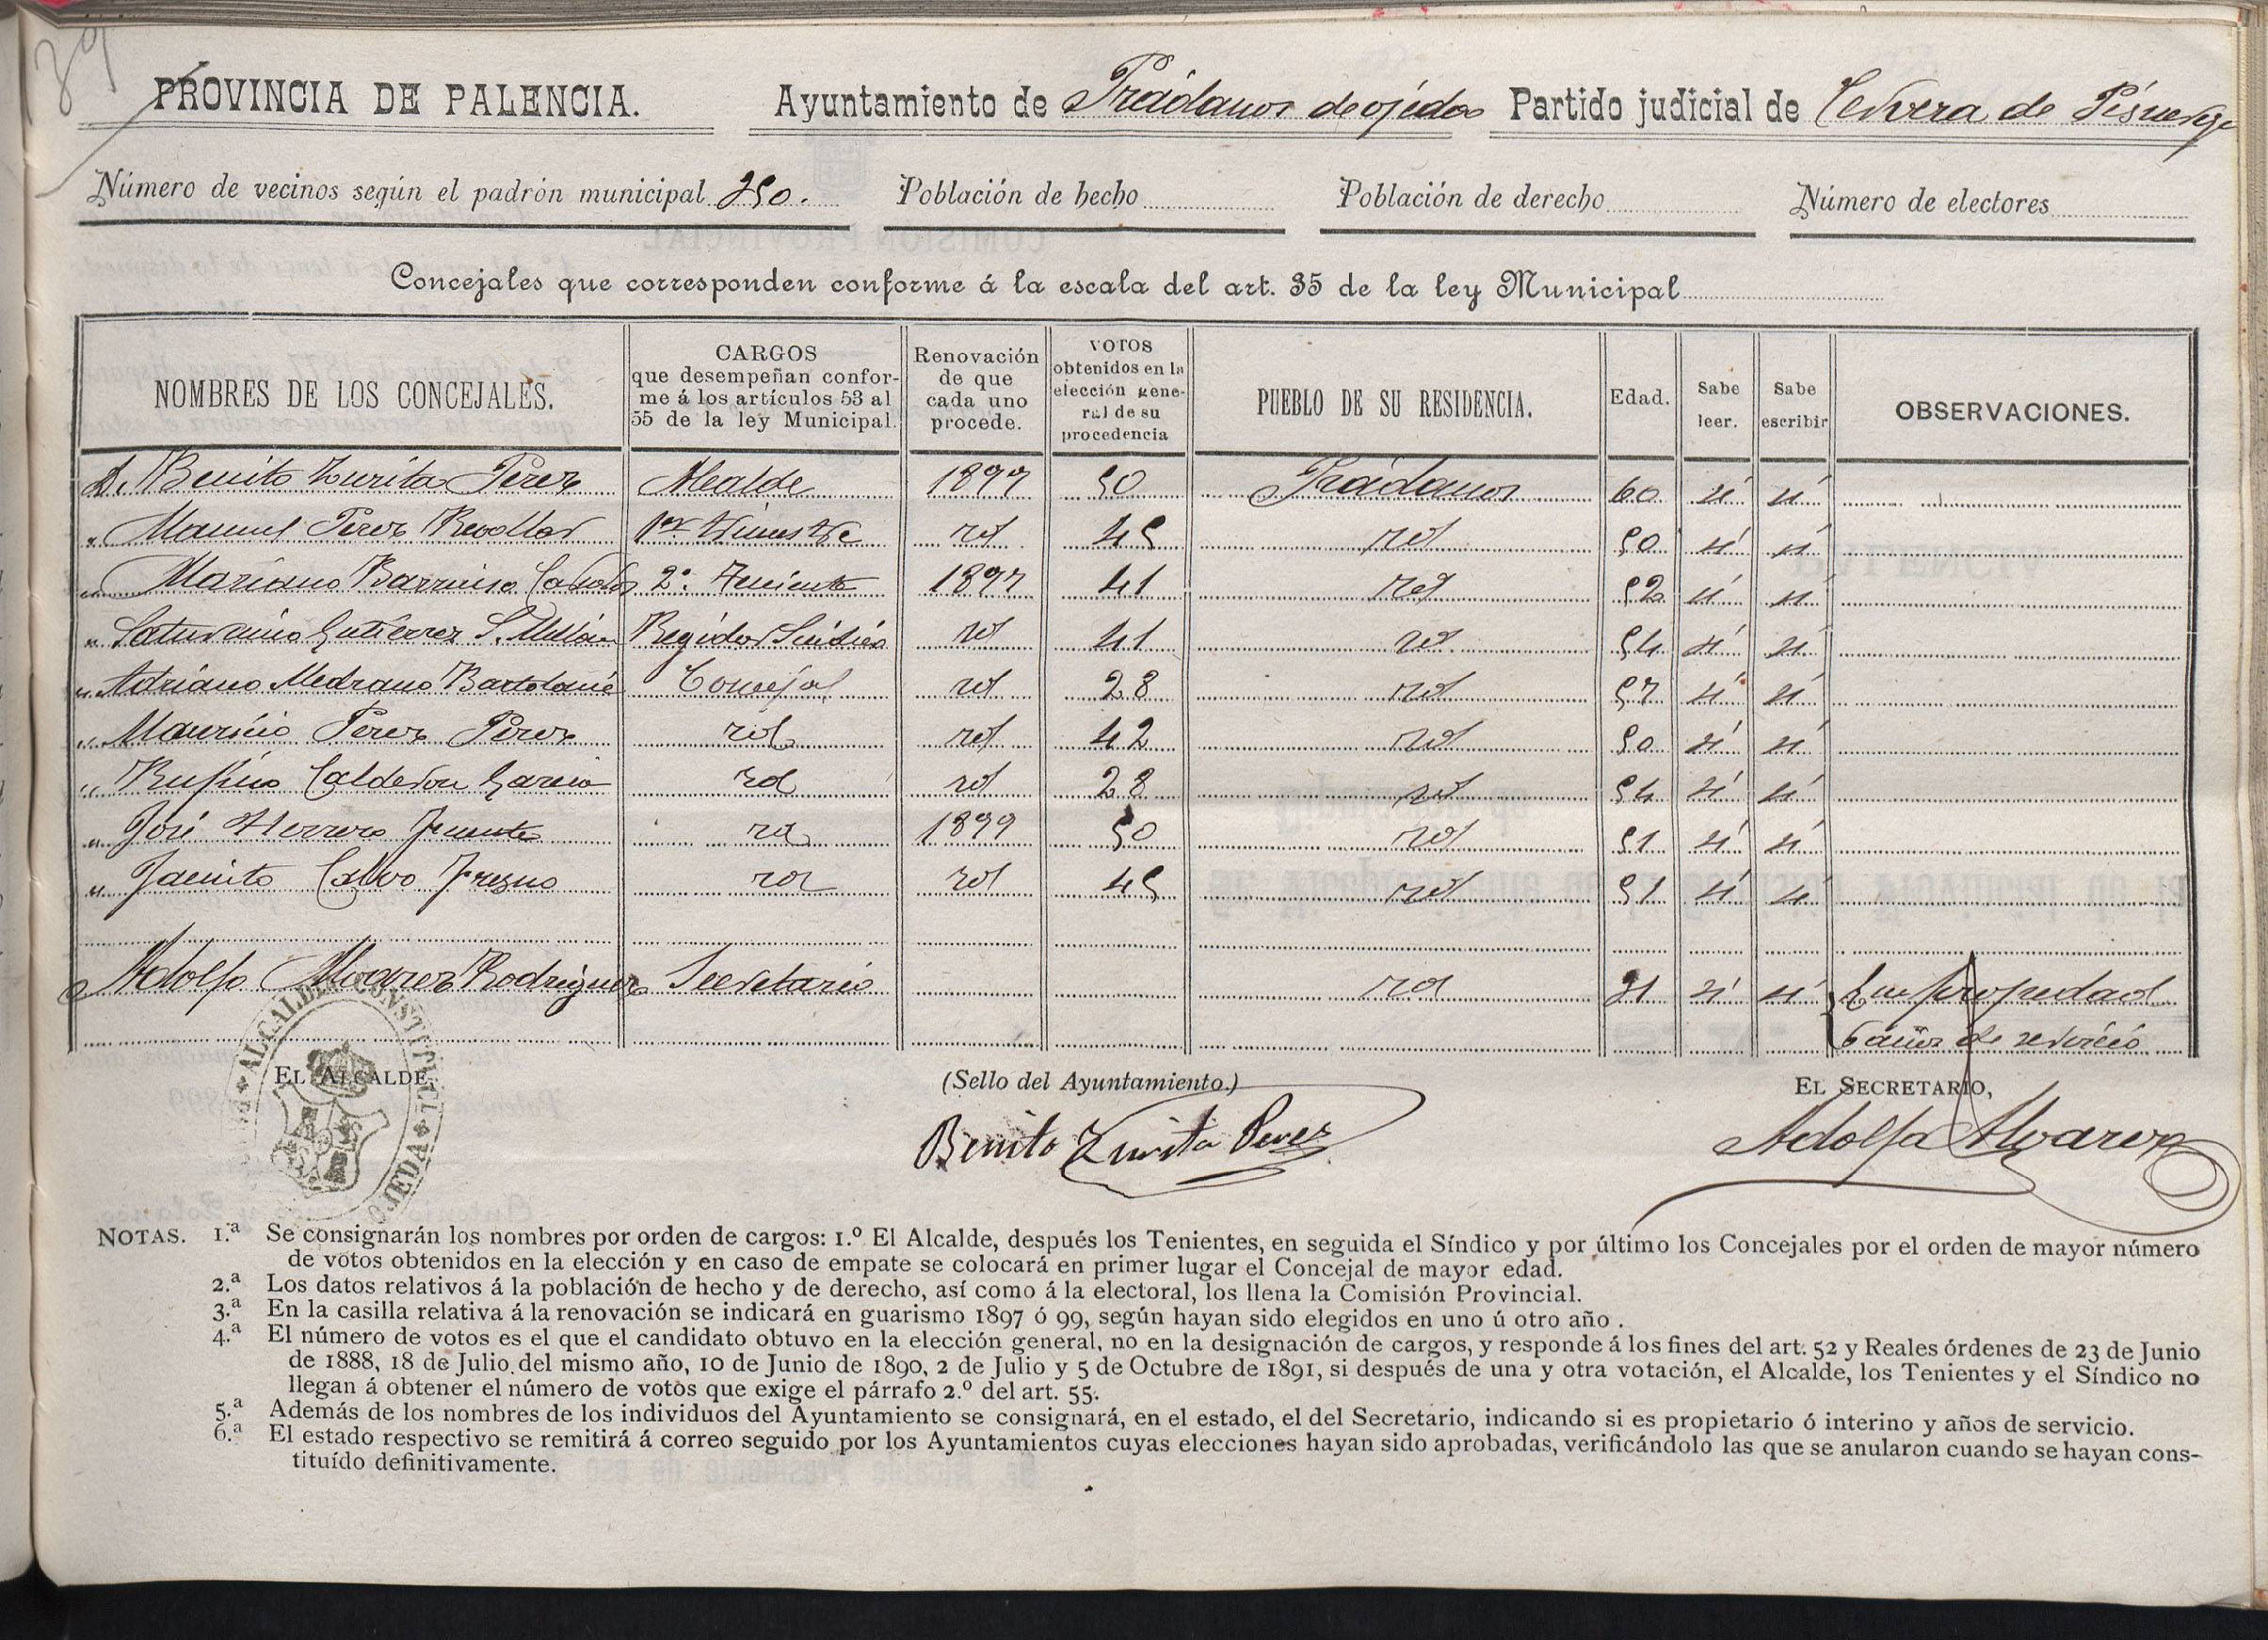 89
PROVINCIA DE PALENCIA. Ayuntamiento de Prádanos de ojéda Partido judicial de Cervera de Pisuerga
Número de vecinos según el padrón municipal 250. Población de hecho Población de derecho Número de electores
Concejales que corresponden conforme á la escala del art. 35 de la ley Municipal
NOMBRES DE LOS CONCEJALES. CARGOS que desempeñan confor- me á los artículos 53 al 55 de la ley Municipal. Renovación de que cada uno procede. VOTOS obtenidos en la elección gene- ral de su procedencia PUEBLO DE SU RESIDENCIA. Edad. Sabe leer. Sabe escribir OBSERVACIONES.
D. Benito Zurita Perez Alcalde 1899 50 Prádanos 60 si si
" Manuel Perez Revollar 1er id 45 id 50 si si
" Mariano Barruiso 2º. Teniente 1897 41 id 52 si si
" Saturnino Gutierrez S. Millán Regidor Sindico id 41 id 54 si si
" Adriano Medrano Bartolomé Concejal id 28 id 57 si si
" Mauricio Perez Perez id id 42 id 50 si si
" Rufino Calderon Garcia id id 28 id 54 si si
" José Herrero Fuente id 1899 50 id 51 si si
" Jacinto Calvo Fresno id id 45 id 51 si si
Adolfo Alvarez Rodriguez Secretario id 31 si si En propiedad
6 años de servicio
ALCALDIA CONSTITUCL OJEDA
EL ALCALDE, (Sello del Ayuntamiento.) EL SECRETARIO,
Benito Zurita Perez Adolfo Alvarez
NOTAS. 1.ª Se consignarán los nombres por orden de cargos: 1.º El Alcalde, después los Tenientes, en seguida el Síndico y por último los Concejales por el orden de mayor número
de votos obtenidos en la elección y en caso de empate se colocará en primer lugar el Concejal de mayor edad.
2.ª Los datos relativos á la población de hecho y de derecho, así como á la electoral, los llena la Comisión Provincial.
3.ª En la casilla relativa á la renovación se indicará en guarismo 1897 ó 99, según hayan sido elegidos en uno ú otro año.
4.ª El número de votos es el que el candidato obtuvo en la elección general, no en la designación de cargos, y responde á los fines del art. 52 y Reales órdenes de 23 de Junio
de 1888, 18 de Julio del mismo año, 10 de Junio de 1890, 2 de Julio y 5 de Octubre de 1891, si después de una y otra votación, el Alcalde, los Tenientes y el Síndico no
llegan á obtener el número de votos que exige el párrafo 2.º del art. 55.
5.ª Además de los nombres de los individuos del Ayuntamiento se consignará, en el estado, el del Secretario, indicando si es propietario ó interino y años de servicio.
6.ª El estado respectivo se remitirá á correo seguido por los Ayuntamientos cuyas elecciones hayan sido aprobadas, verificándolo las que se anularon cuando se hayan cons-
tituído definitivamente.